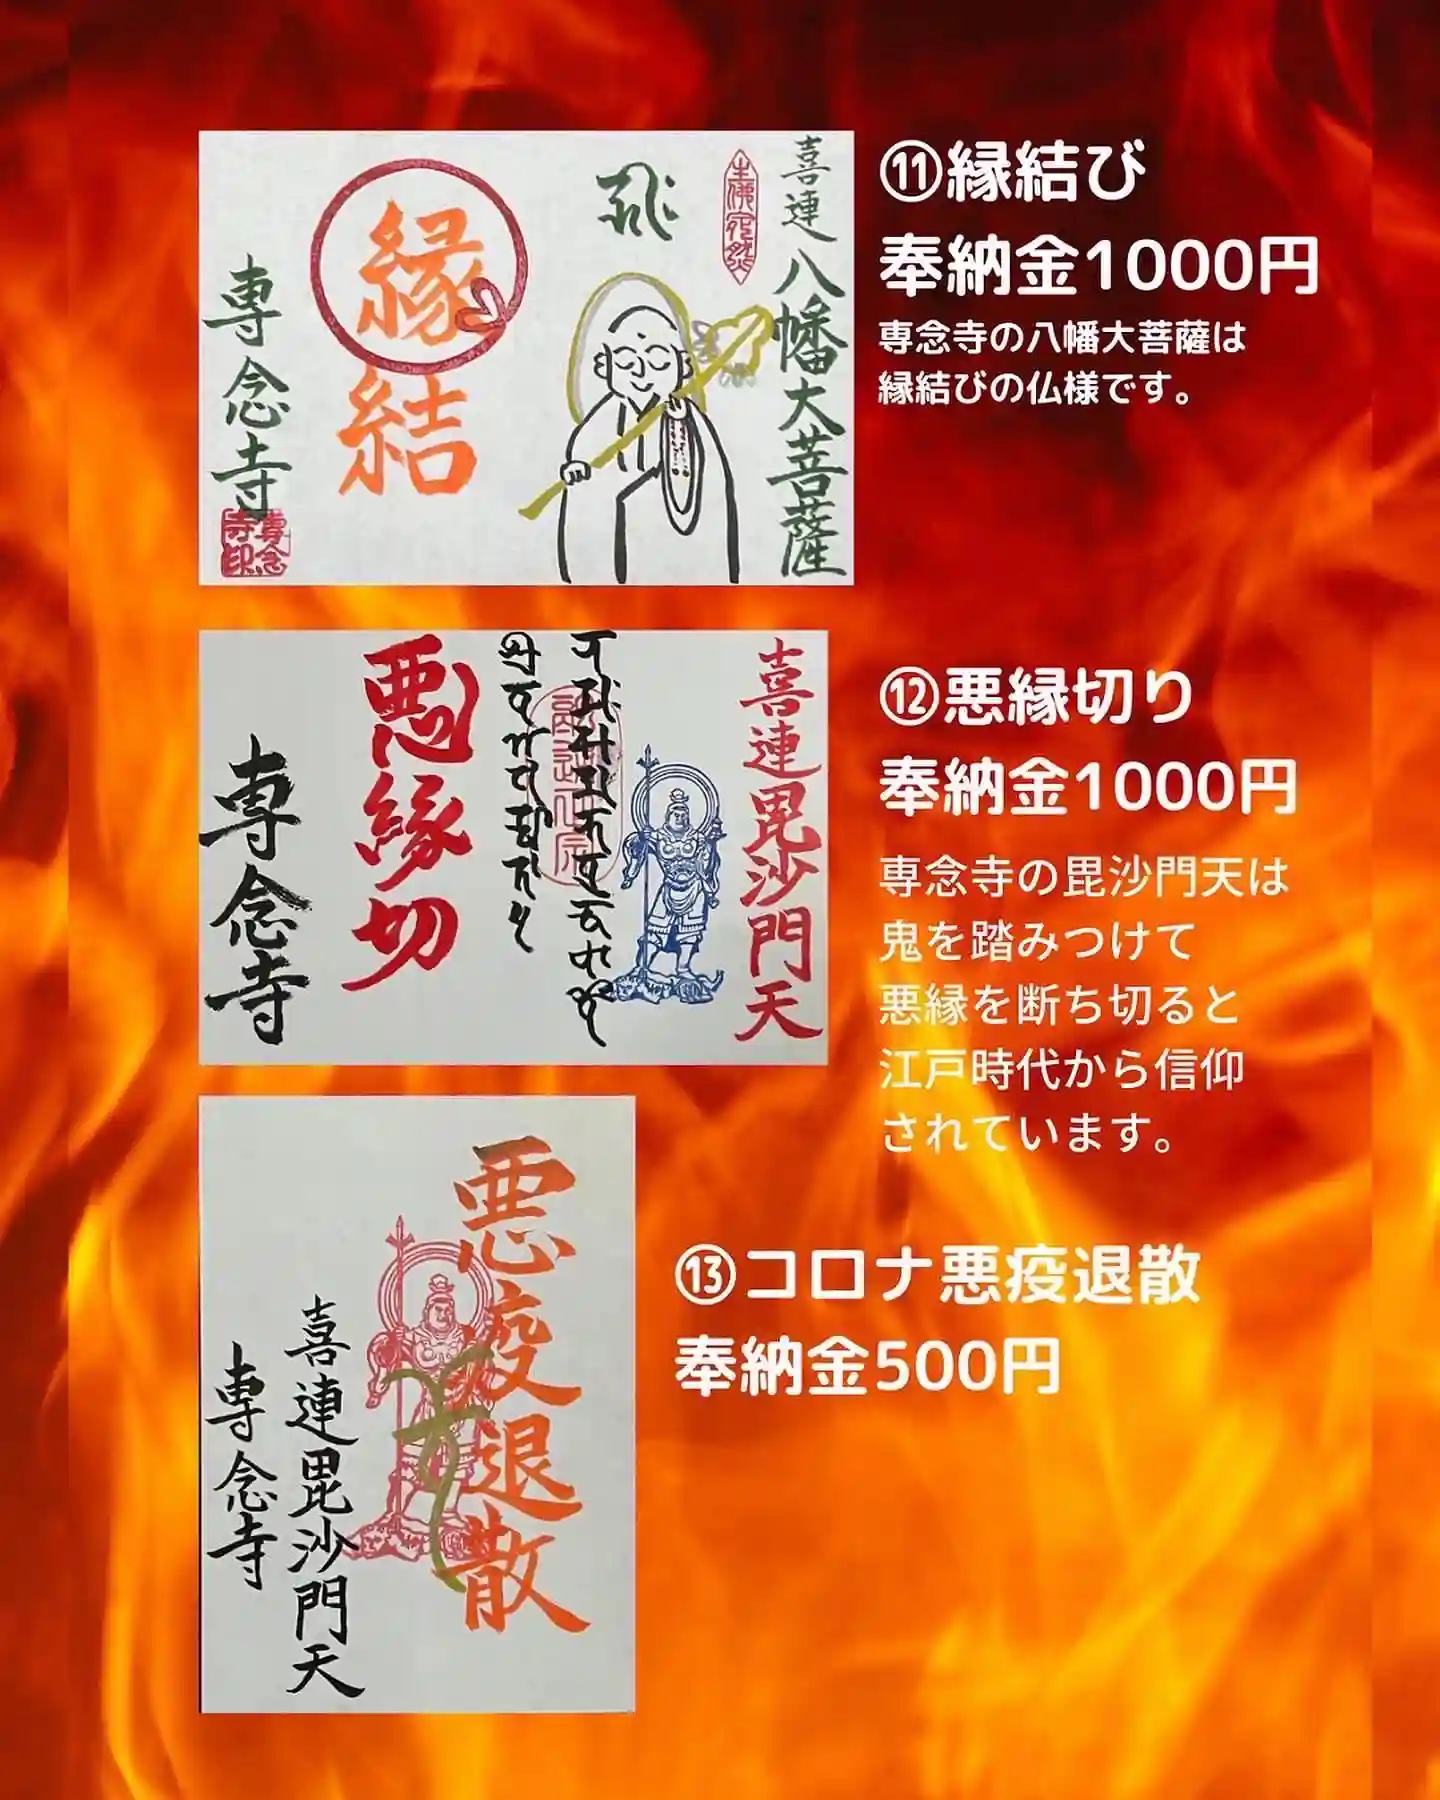 喜連八幡大菩薩
縁結
専念寺
専念寺印
⑪縁結び
奉納金1000円
専念寺の八幡大菩薩は
縁結びの仏様です。
喜連毘沙門天
悪縁切
専念寺
⑫悪縁切り
奉納金1000円
専念寺の毘沙門天は
鬼を踏みつけて
悪縁を断ち切ると
江戸時代から信仰
されています。
悪疫退散
喜連毘沙門天
専念寺
⑬コロナ悪疫退散
奉納金500円